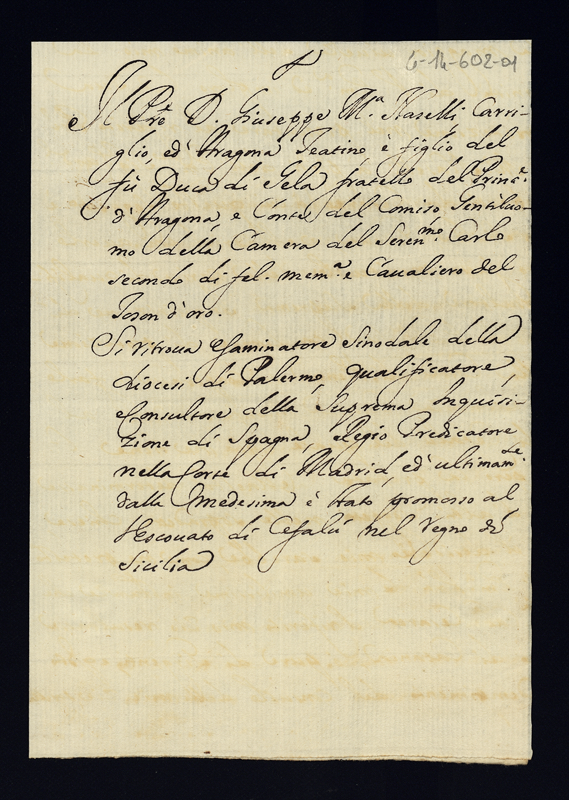 6-14-602-01
Il Pre D. Giuseppe Ma. Naselli Carri-
glio, ed' Aragona Teatino, è figlio del
fù Duca di Gela fratello del Princ.e
d'Aragona, e Conte del Comiso, Gentiluo-
mo della Camera del Seren.mo Carlo
secondo di fel. mem.a e Caualiero del
Toson d'oro.
Si ritroua esaminatore sinodale della
diocesi di Palermo, qualificatore,
e Consultore della Suprema Inquisi-
zione di Spagna, Regio Predicatore
nella Corte di Madrid, ed' ultimam.te
dalla Medesima è stato promosso al
Vescouato di Cefalù nel Regno di
Sicilia